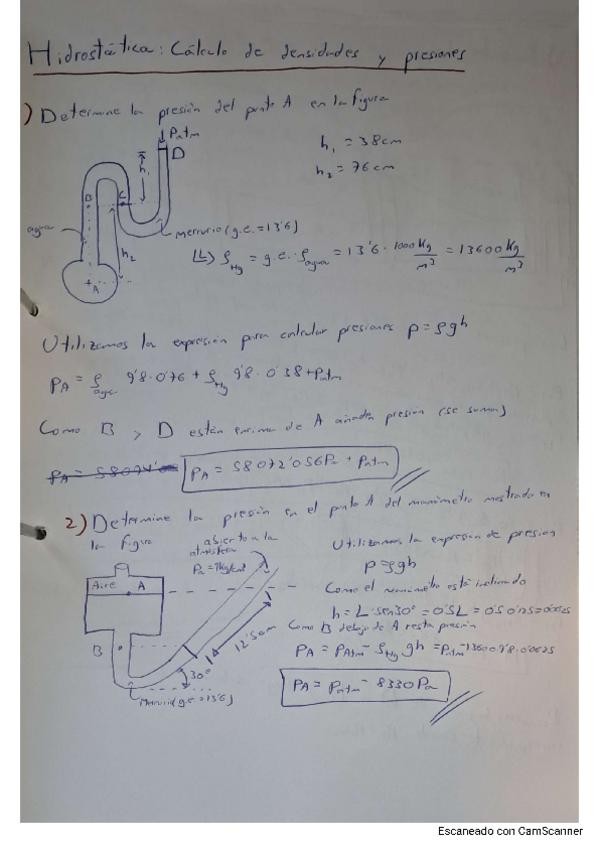 Hidrostática: Cálculo de densidades y presiones
1) Determine la presión del punto A en la figura
Patm
D
h₁ = 38cm
h₂ = 76cm
h₁
B
C
agua
mercurio (g.e. = 13'6)
h₂
A
↳ ρHg = g.e. · ρagua = 13'6 · 1000 Kg/m³ = 13600 Kg/m³
Utilizamos la expresión para calcular presiones p = ρgh
PA = ρagua 9'8·0'76 + ρHg 9'8·0'38 + Patm
Como B y D están encima de A añaden presión (se suman)
PA = 58072'056Pa + Patm
2) Determine la presión en el punto A del manómetro mostrado en
la figura
abierto a la
atmósfera
Utilizamos la expresión de presión
p = ρgh
Aire
A
Como el manómetro está inclinado
h = L·sen30° = 0'5L = 0'5·0'125 = 0'0625
12'50cm
Como B debajo de A resta presión
B
PA = Patm - ρHg gh = Patm - 13600·9'8·0'0625
30°
Mercurio (g.e = 13'6)
PA = Patm - 8330Pa
Escaneado con CamScanner